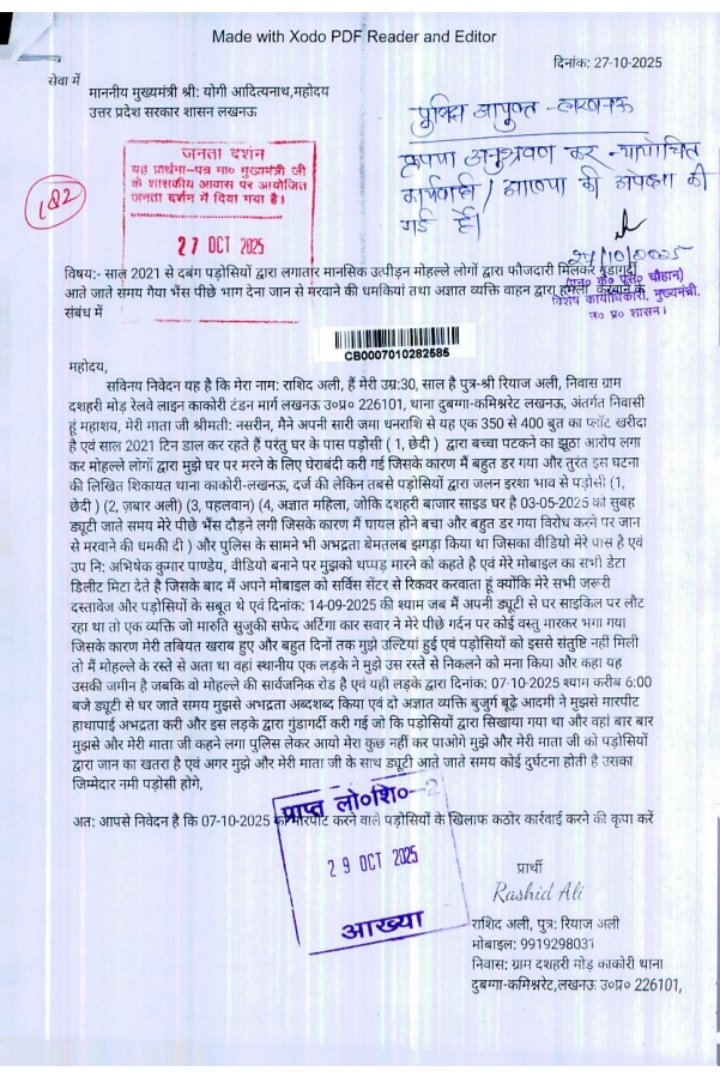 Made with Xodo PDF Reader and Editor
दिनांक: 27-10-2025
सेवा में
माननीय मुख्यमंत्री श्री: योगी आदित्यनाथ,महोदय
उत्तर प्रदेश सरकार शासन लखनऊ
पुलिस आयुक्त - लखनऊ
कृपया अनुश्रवण कर न्यायोचित
कार्यवाही / आख्या की अपेक्षा की
गई है।
27/10/2025
(एन० के० एस० चौहान)
विशेष कार्याधिकारी, मुख्यमंत्री,
उ० प्र० शासन।
जनता दर्शन
यह प्रार्थना-पत्र मा० मुख्यमंत्री जी
के शासकीय आवास पर आयोजित
जनता दर्शन में दिया गया है।
27 OCT 2025
182
विषय:- साल 2021 से दबंग पड़ोसियों द्वारा लगातार मानसिक उत्पीड़न मोहल्ले लोगों द्वारा फौजदारी मिलकर गुंडागर्दी
आते जाते समय गया भैंस पीछे भाग देना जान से मरवाने की धमकियां तथा अज्ञात व्यक्ति वाहन द्वारा हमला करवाने के
संबंध में
CB0007010282585
महोदय,
सविनय निवेदन यह है कि मेरा नाम: राशिद अली, हैं मेरी उम्र:30, साल है पुत्र-श्री रियाज अली, निवास ग्राम
दशहरी मोड़ रेलवे लाइन काकोरी टंडन मार्ग लखनऊ उ०प्र० 226101, थाना दुबग्गा-कमिश्नरेट लखनऊ, अंतर्गत निवासी
हूं महाशय, मेरी माता जी श्रीमती: नसरीन, मैने अपनी सारी जमा धनराशि से यह एक 350 से 400 बुत का प्लॉट खरीदा
है एवं साल 2021 टिन डाल कर रहते हैं परंतु घर के पास पड़ोसी ( 1, छेदी ) द्वारा बच्चा पटकने का झूठा आरोप लगा
कर मोहल्ले लोगों द्वारा मुझे घर पर मरने के लिए घेराबंदी करी गई जिसके कारण मैं बहुत डर गया और तुरंत इस घटना
की लिखित शिकायत थाना काकोरी-लखनऊ, दर्ज की लेकिन तबसे पड़ोसियों द्वारा जलन इरशा भाव से पड़ोसी (1,
छेदी ) (2, ज़बार अली) (3, पहलवान) (4, अज्ञात महिला, जोकि दशहरी बाजार साइड घर है 03-05-2025 को सुबह
ड्यूटी जाते समय मेरे पीछे भैंस दौड़ने लगी जिसके कारण मैं घायल होने बचा और बहुत डर गया विरोध करने पर जान
से मरवाने की धमकी दी ) और पुलिस के सामने भी अभद्रता बेमतलब झगड़ा किया था जिसका वीडियो मेरे पास है एवं
उप नि: अभिषेक कुमार पाण्डेय, वीडियो बनाने पर मुझको थप्पड़ मारने को कहते है एवं मेरे मोबाइल का सभी डेटा
डिलीट मिटा देते है जिसके बाद मैं अपने मोबाइल को सर्विस सेंटर से रिकवर करवाता हूं क्योंकि मेरे सभी जरूरी
दस्तावेज और पड़ोसियों के सबूत थे एवं दिनांक: 14-09-2025 की श्याम जब मैं अपनी ड्यूटी से घर साइकिल पर लौट
रहा था तो एक व्यक्ति जो मारुति सुजुकी सफेद अर्टिगा कार सवार ने मेरे पीछे गर्दन पर कोई वस्तु मारकर भगा गया
जिसके कारण मेरी तबियत खराब हुए और बहुत दिनों तक मुझे उल्टियां हुई एवं पड़ोसियों को इससे संतुष्टि नहीं मिली
तो मैं मोहल्ले के रस्ते से अता था वहां स्थानीय एक लड़के ने मुझे उस रस्ते से निकलने को मना किया और कहा यह
उसकी जमीन है जबकि वो मोहल्ले की सार्वजनिक रोड है एवं यही लड़के द्वारा दिनांक: 07-10-2025 श्याम करीब 6:00
बजे ड्यूटी से घर जाते समय मुझसे अभद्रता अब्दशब्द किया एवं दो अज्ञात व्यक्ति बुजुर्ग बूढ़े आदमी ने मुझसे मारपीट
हाथापाई अभद्रता करी और इस लड़के द्वारा गुंडागर्दी करी गई जो कि पड़ोसियों द्वारा सिखाया गया था और वहां बार बार
मुझसे और मेरी माता जी कहने लगा पुलिस लेकर आयो मेरा कुछ नहीं कर पाओगे मुझे और मेरी माता जी को पड़ोसियों
द्वारा जान का खतरा है एवं अगर मुझे और मेरी माता जी के साथ ड्यूटी आते जाते समय कोई दुर्घटना होती है उसका
जिम्मेदार नमी पड़ोसी होगे,
प्राप्त लो०शि०-2
29 OCT 2025
आख्या
अत: आपसे निवेदन है कि 07-10-2025 को मारपीट करने वाले पड़ोसियों के खिलाफ कठोर कार्रवाई करने की कृपा करें
प्रार्थी
Rashid Ali
राशिद अली, पुत्र: रियाज अली
मोबाइल: 9919298031
निवास: ग्राम दशहरी मोड़ काकोरी थाना
दुबग्गा-कमिश्नरेट,लखनऊ उ०प्र० 226101,